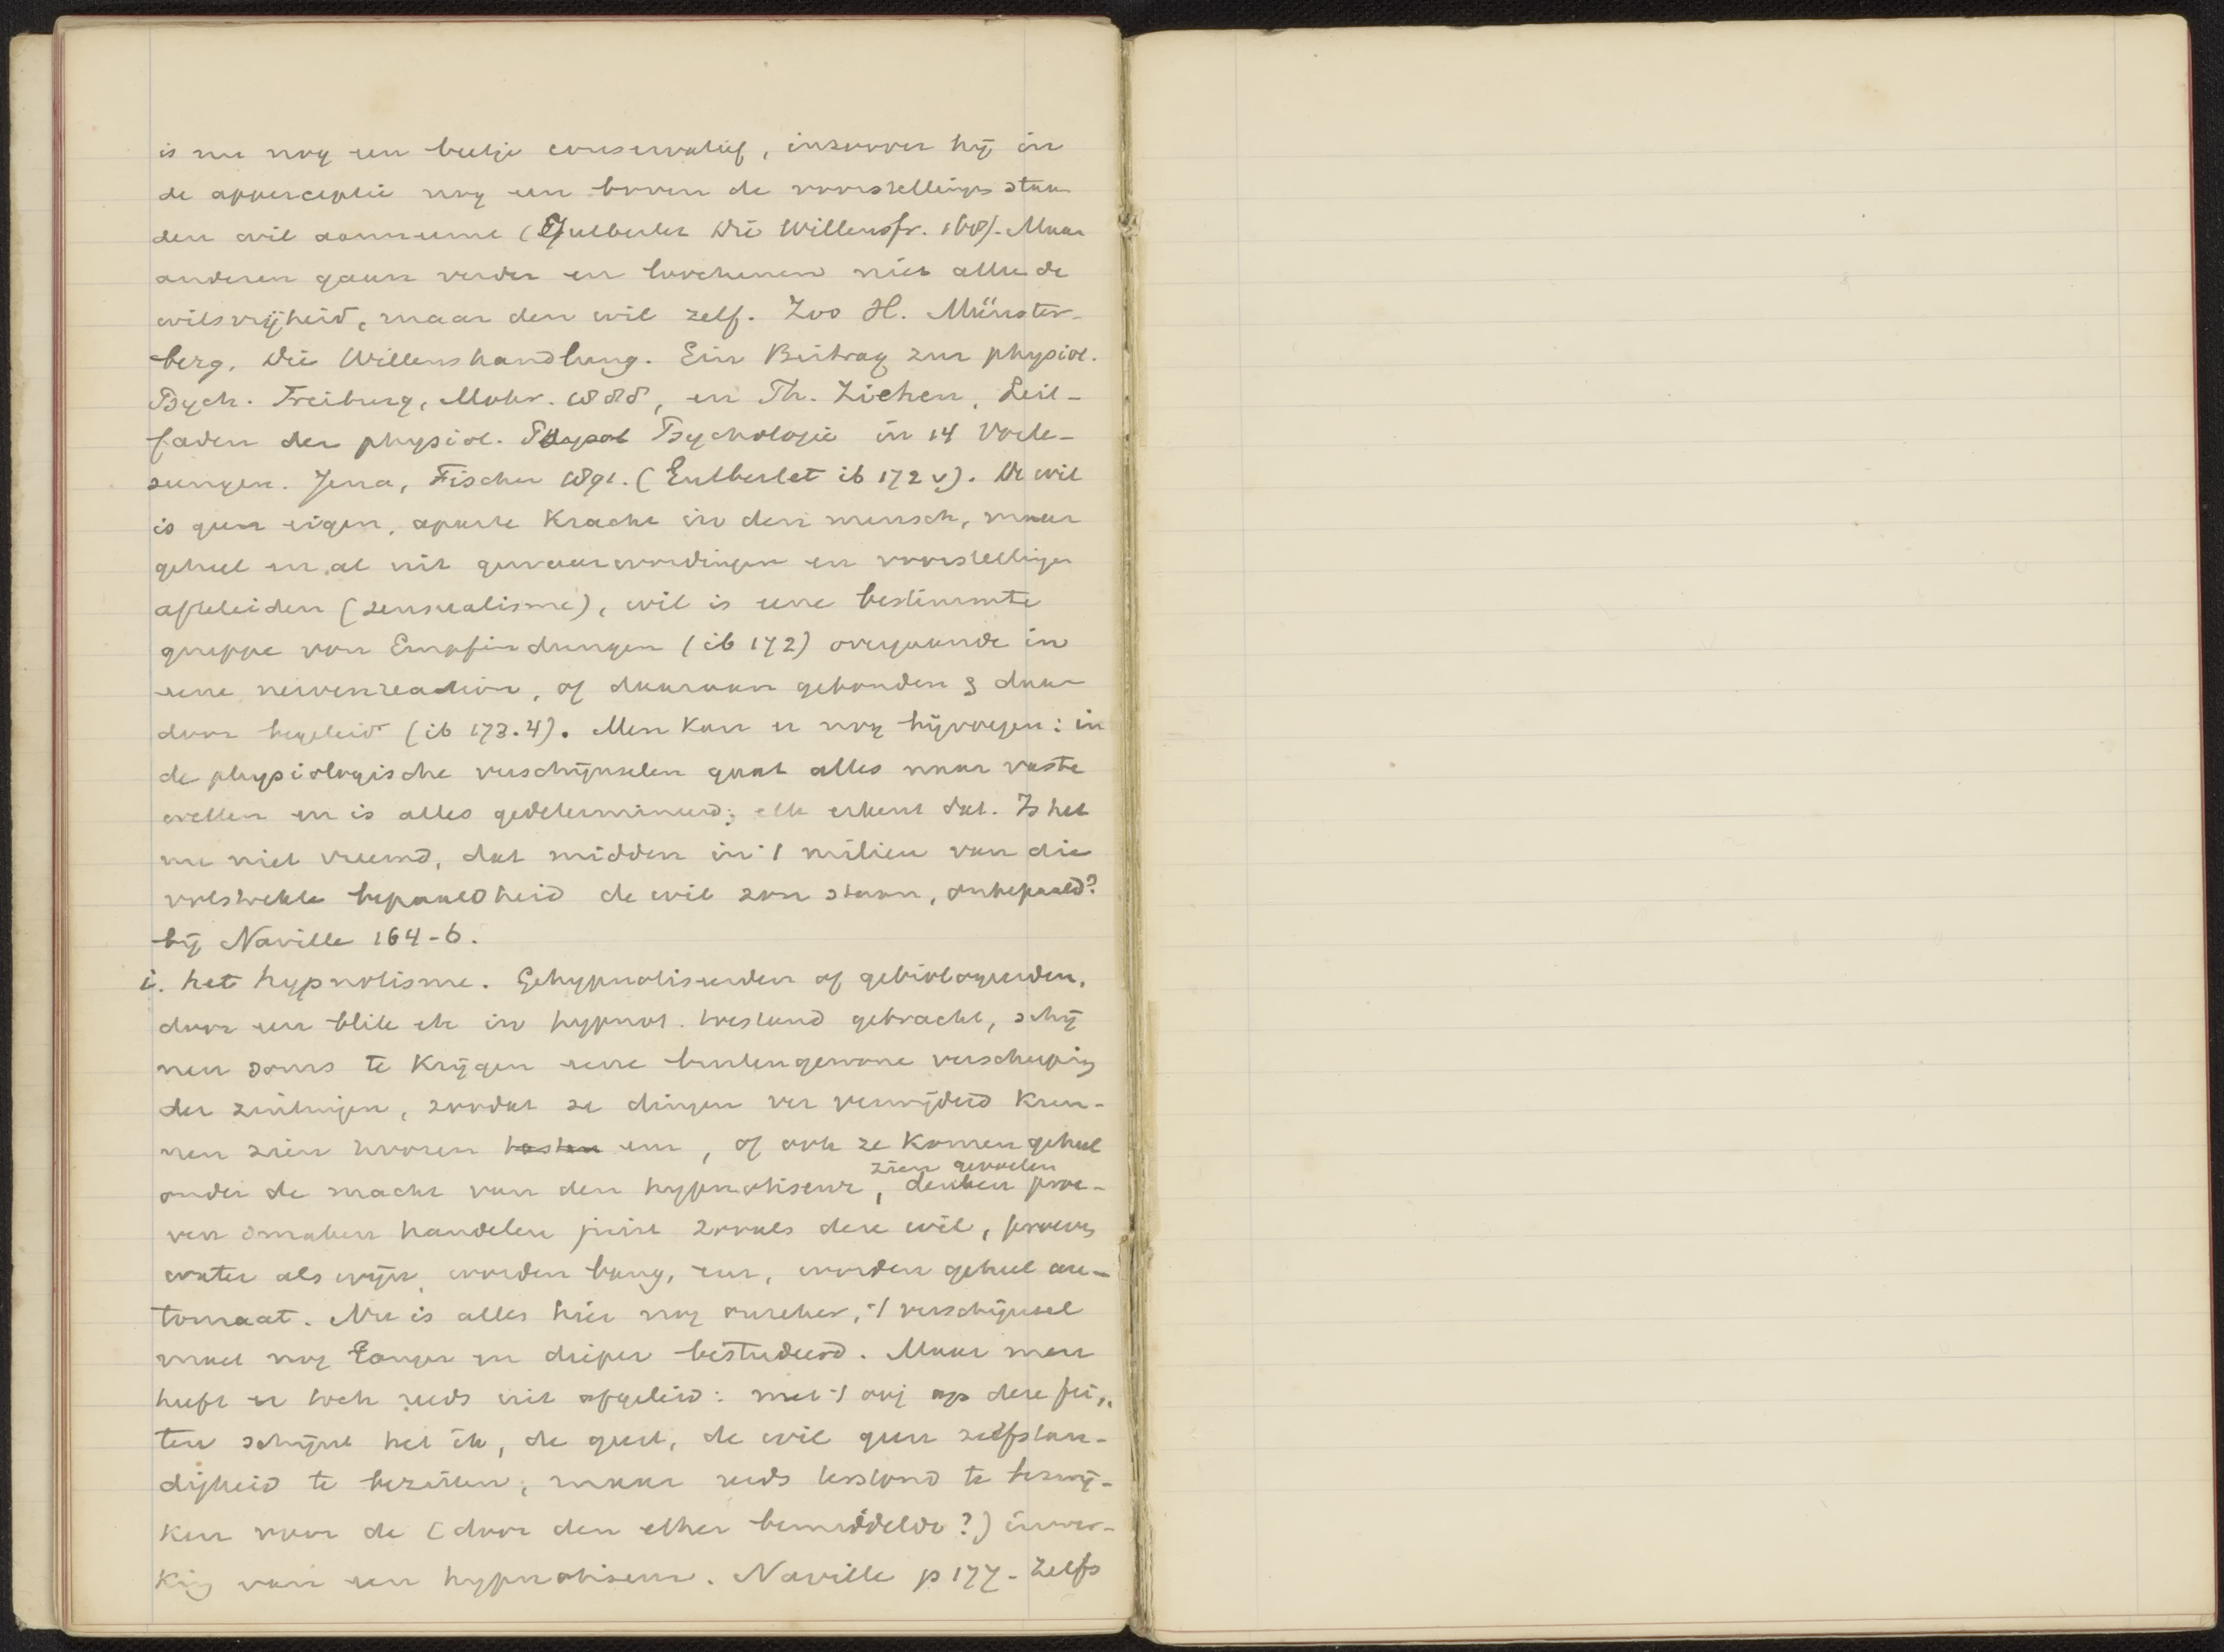 is nu nog een beetje conservatief, inzoover hij in
de apperceptie nog een boven de voorstellings staan
den wil aanneemt (Gutberlet Die Willensfr. 168). Maar
anderen gaan verder en loochenen niet alleen de
wilsvrijheid, maar den wil zelf. Zoo H. Münster-
berg, Die Willenshandlung. Ein Beitrag zur physiol.
Psych. Freiburg, Mohr. 1888, en Th. Ziehen, Leit-
faden der physiol. Psychologie in 14 Vorle-
sungen. Jena, Fischer 1891. (Gutberlet ib 172 v). De wil
is geen eigen, aparte Kracht in den mensch, maar
geheel en al uit gewaarwordingen en voorstellingen
afteleiden (sensualisme), wil is eene bestimmte
gruppe von Empfindungen (ib 172) overgaande in
eene nervenreaction, of daaraan gebonden & daar
door begeleid (ib 173.4). Men kan er nog bijvoegen: in
de physiologische verschijnselen gaat alles naar vaste
wetten en is alles gedetermineerd; elk erkent dat. Is het
nu niet vreemd, dat midden in 't milieu van die
volstrekte bepaaldheid de wil zou staan, onbepaald?
bij Naville 164-6.
i. het hypnotisme. Gehypnotiseerden of gebiologeerden,
door een blik etc in hypnot. toestand gebracht, schij
nen soms te Krijgen eene buitengewone verscherping
der zintuigen, zoodat ze dingen ver verwijderd Kun-
nen zien hooren tasten enz, of ook ze Komen geheel
zien gevoelen
onder de macht van den hypnotiseur, denken proe-
ven smaken handelen juist zooals deze wil, proeven
water als wijn, worden bang, enz, worden geheel au-
tomaat. Nu is alles hier nog onzeker, 't verschijnsel
moet nog langer en dieper bestudeerd. Maar men
heeft er toch reeds uit afgeleid: met 't oog op deze fei,,
ten schijnt het ik, de geest, de wil geen zelfstan-
digheid te bezitten, maar reeds terstond te bezwij-
ken voor de (door den ether bemiddelde?) inwer-
King van een hypnotiseur. Naville p 177 - Zelfs